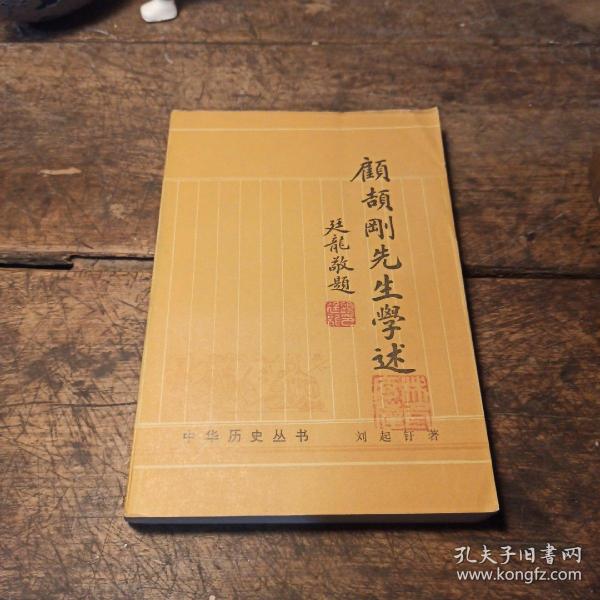 顧頡剛先生學述
廷龍敬題
中华历史丛书
刘起釪著
孔夫子旧书网
www.kongfz.com